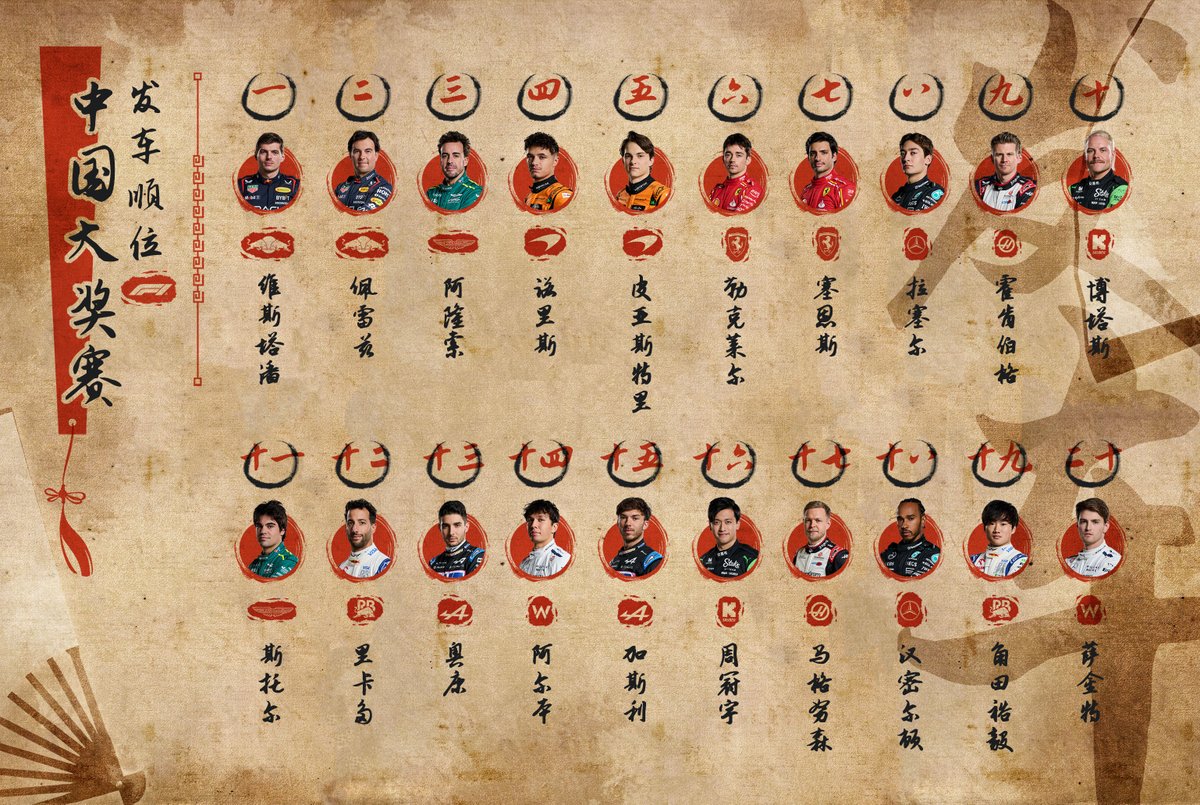 中国大奖赛
发车顺位
F1
一 二 三 四 五 六 七 八 九 十
维斯塔潘
佩雷兹
阿隆索
诺里斯
皮亚斯特里
勒克莱尔
塞恩斯
拉塞尔
霍肯伯格
博塔斯
十一 十二 十三 十四 十五 十六 十七 十八 十九 二十
斯托尔
里卡多
奥康
阿尔本
加斯利
周冠宇
马格努森
汉密尔顿
角田裕毅
萨金特